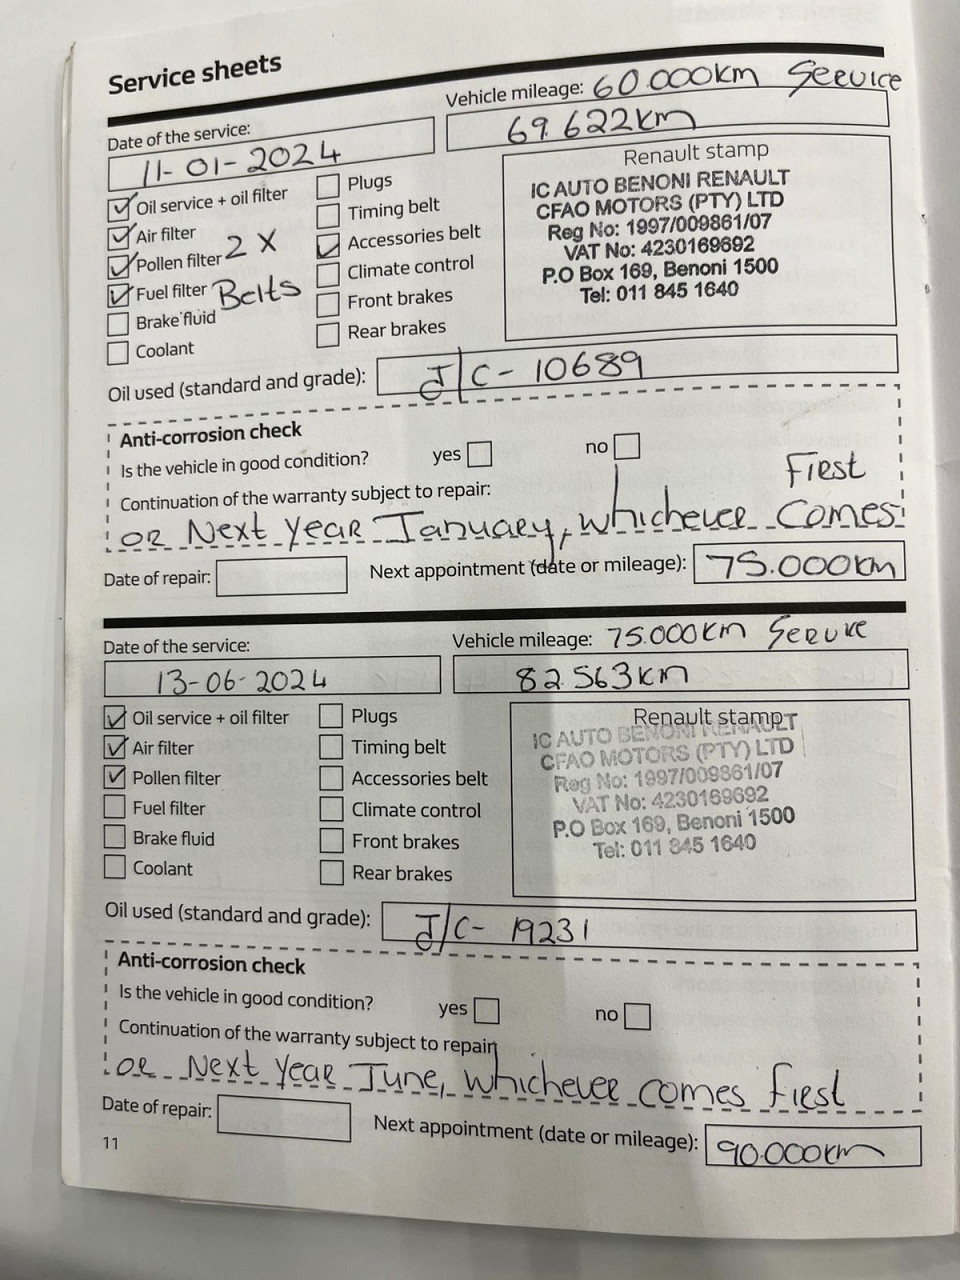 Service sheets
Vehicle mileage: 60.000km Service
Date of the service:
69.622km
11-01-2024
Renault stamp
Oil service + oil filter
Plugs
Air filter
Timing belt
Pollen filter 2 x
Accessories belt
Fuel filter Belts
Climate control
Brake fluid
Front brakes
Coolant
Rear brakes
IC AUTO BENONI RENAULT
CFAO MOTORS (PTY) LTD
Reg No: 1997/009861/07
VAT No: 4230169692
P.O Box 169, Benoni 1500
Tel: 011 845 1640
Oil used (standard and grade): J/C- 10689
Anti-corrosion check
Is the vehicle in good condition? yes no
Continuation of the warranty subject to repair: First
or Next year January, whichever comes
Date of repair: Next appointment (date or mileage): 75.000km
Date of the service: Vehicle mileage: 75.000km Service
13-06-2024 82.563km
Oil service + oil filter
Plugs
Air filter
Timing belt
Pollen filter
Accessories belt
Fuel filter
Climate control
Brake fluid
Front brakes
Coolant
Rear brakes
Renault stamp
IC AUTO BENONI RENAULT
CFAO MOTORS (PTY) LTD
Reg No: 1997/009861/07
VAT No: 4230169692
P.O Box 169, Benoni 1500
Tel: 011 845 1640
Oil used (standard and grade): J/C- 19231
Anti-corrosion check
Is the vehicle in good condition? yes no
Continuation of the warranty subject to repair
or Next year June, whichever comes first
Date of repair: Next appointment (date or mileage): 90.000km
11